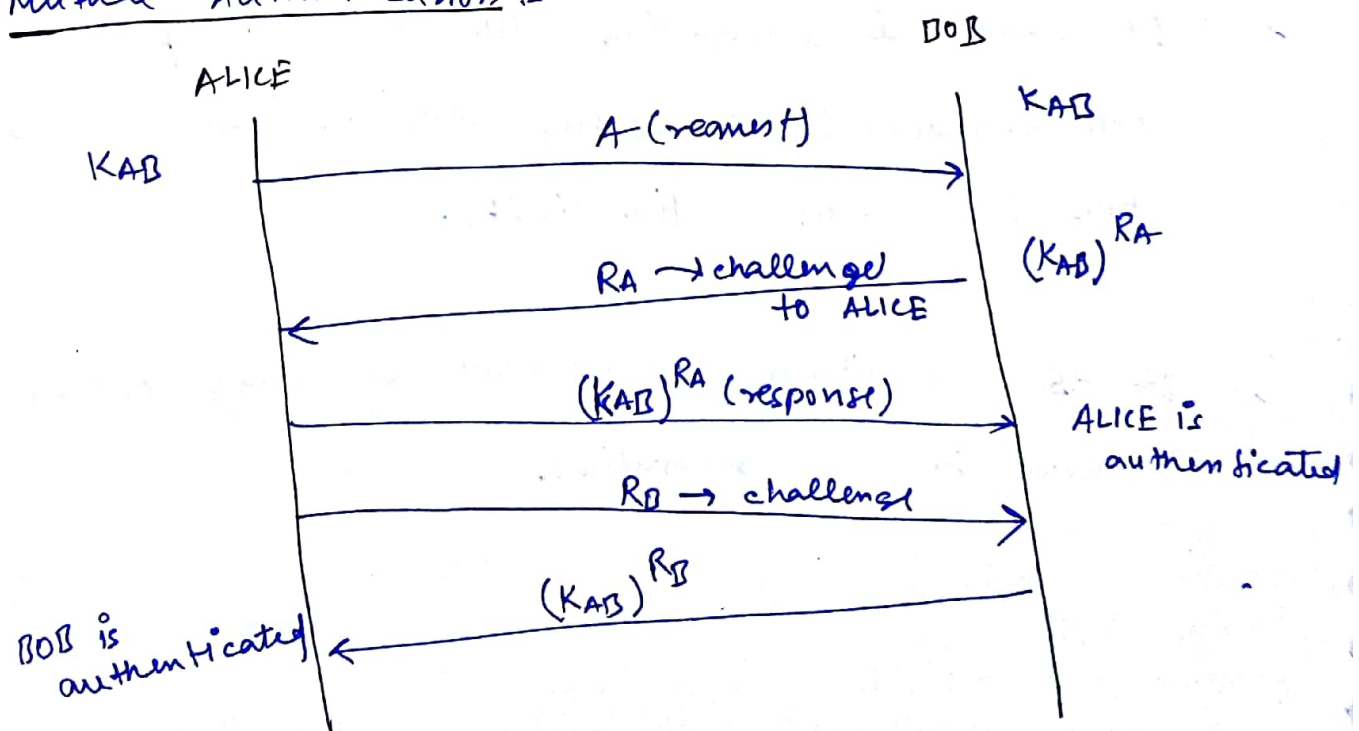 ALICE
BOB
KAB
KAB
A (request)
(KAB)^RA
RA → challenge
to ALICE
(KAB)^RA (response)
ALICE is
authenticated
RB → challenge
(KAB)^RB
BOB is
authenticated